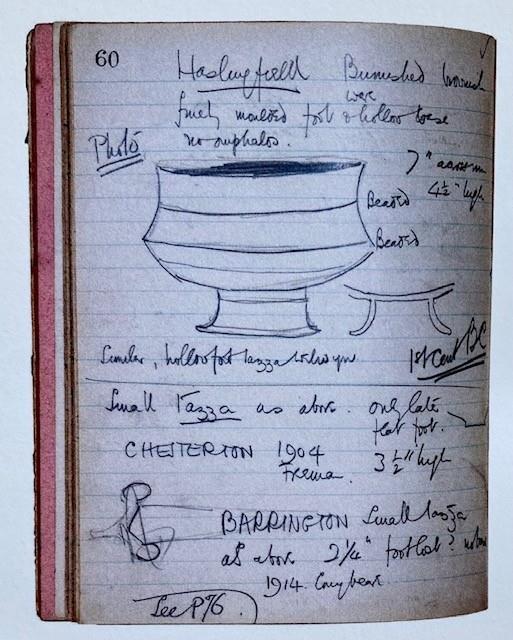 60
Haslingfield Burnished brownish
ware
finely moulded foot & hollow base
no omphalos.
Photo
7" across
4½" high
Beaded
Beaded
Similar, hollow foot tazza Welwyn
1st Cent BC
Small Tazza as above. only late
flat foot.
CHESTERTON 1904
3½" high
BARRINGTON Small tazza
as above 2¼" foot lost? no
1914. Conybeare
See P76.